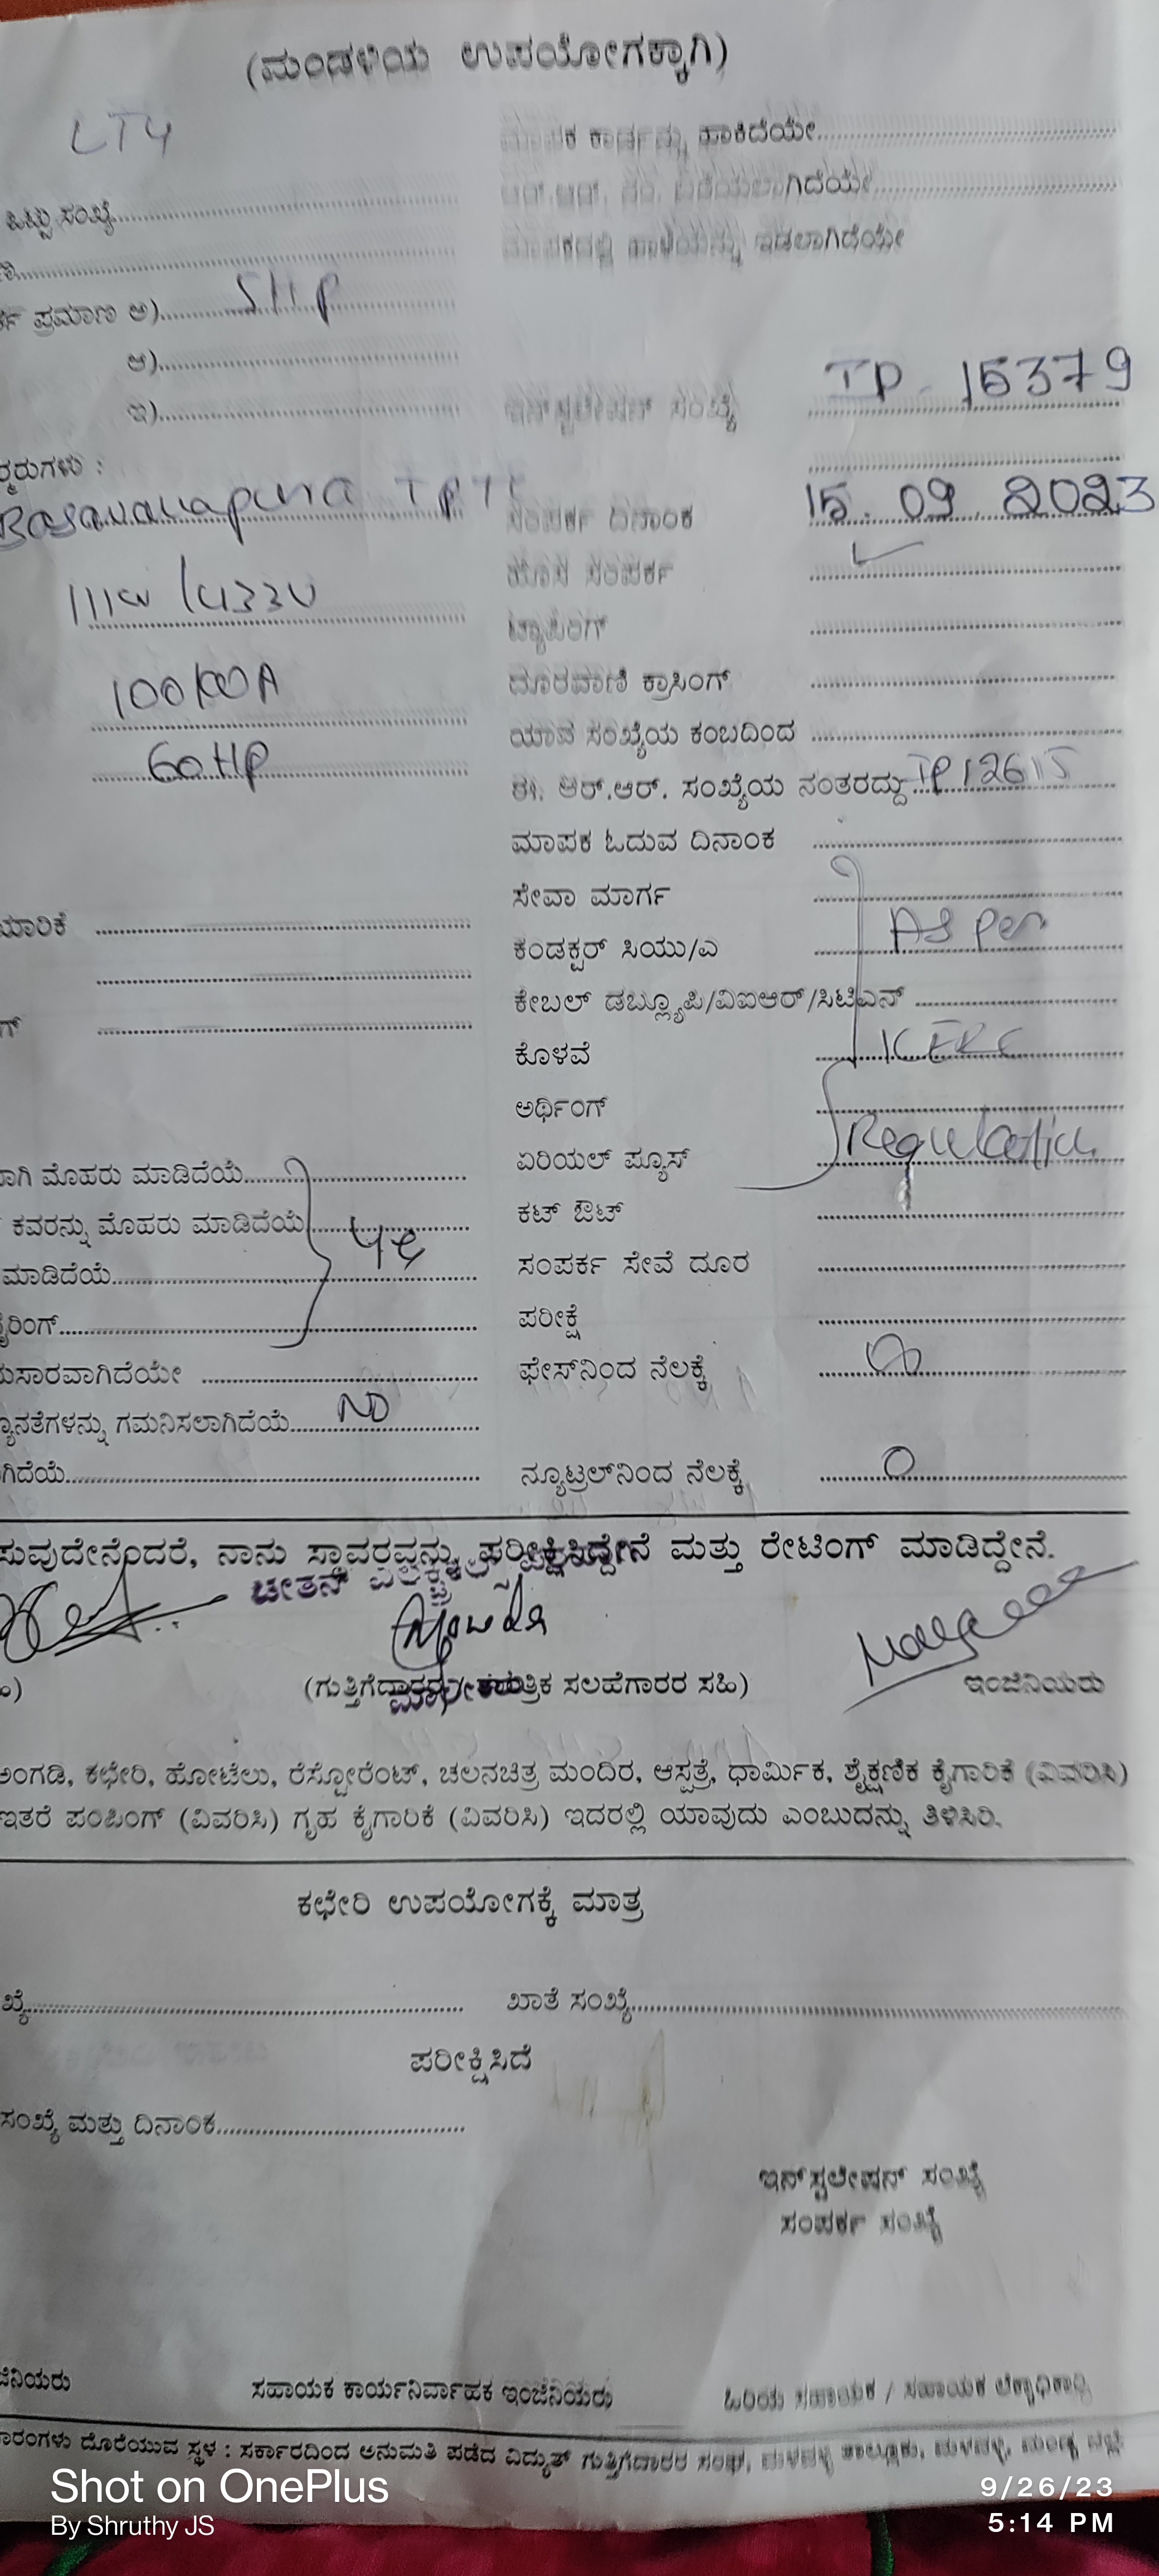 (ಮಂಡಳಿಯ ಉಪಯೋಗಕ್ಕಾಗಿ)
LT4
ಮಾಪಕ ಕಾರ್ಡನ್ನು ಹಾಕಿದೆಯೇ
ಆರ್.ಆರ್. ನಂ. ಬರೆಯಲಾಗಿದೆಯೇ
ಹಿಟ್ಟು ಸಂಖ್ಯೆ
ಮಾಪಕದಲ್ಲಿ ಹಾಳೆಯನ್ನು ಇಡಲಾಗಿದೆಯೇ
ಪ್ರಮಾಣ ಅ) 5HP
ಆ)
ಇ)
ಇನ್‌ಸ್ಟಲೇಷನ್ ಸಂಖ್ಯೆ TP 15379
Basavanapura
ಸಂಪರ್ಕ ದಿನಾಂಕ 15.09.2023
ಹೊಸ ಸಂಪರ್ಕ
11kv/433V
ಟ್ಯಾಪಿಂಗ್
100KVA
ದೂರವಾಣಿ ಕ್ರಾಸಿಂಗ್
ಯಾವ ಸಂಖ್ಯೆಯ ಕಂಬದಿಂದ
60HP
ಈ. ಆರ್.ಆರ್. ಸಂಖ್ಯೆಯ ನಂತರದ್ದು TP12615
ಮಾಪಕ ಓದುವ ದಿನಾಂಕ
ಸೇವಾ ಮಾರ್ಗ
ಕಂಡಕ್ಟರ್ ಸಿಯು/ಎ As per
ಕೇಬಲ್ ಡಬ್ಲ್ಯೂಪಿ/ವಿಐಆರ್/ಸಿಟಿಎನ್
ಕೊಳವೆ KERC
ಅರ್ಥಿಂಗ್
ಏರಿಯಲ್ ಪ್ಯೂಸ್ Regulation
ಮೊಹರು ಮಾಡಿದೆಯೆ
ಕವರನ್ನು ಮೊಹರು ಮಾಡಿದೆಯೆ
ಕಟ್ ಔಟ್
ಮಾಡಿದೆಯೆ
ಸಂಪರ್ಕ ಸೇವೆ ದೂರ
ಪರೀಕ್ಷೆ
ಫೇಸ್‌ನಿಂದ ನೆಲಕ್ಕೆ
ಗಮನಿಸಲಾಗಿದೆಯೆ NO
ನ್ಯೂಟ್ರಲ್‌ನಿಂದ ನೆಲಕ್ಕೆ
ನಾನು ಸ್ಥಾವರವನ್ನು ಪರೀಕ್ಷಿಸಿದ್ದೇನೆ ಮತ್ತು ರೇಟಿಂಗ್ ಮಾಡಿದ್ದೇನೆ.
ಚೇತನ್
ಸಲಹೆಗಾರರ ಸಹಿ)
ಇಂಜಿನಿಯರು
ಅಂಗಡಿ, ಕಛೇರಿ, ಹೋಟೆಲು, ರೆಸ್ಟೋರೆಂಟ್, ಚಲನಚಿತ್ರ ಮಂದಿರ, ಆಸ್ಪತ್ರೆ, ಧಾರ್ಮಿಕ, ಶೈಕ್ಷಣಿಕ ಕೈಗಾರಿಕೆ (ವಿವರಿಸಿ)
ಇತರೆ ಪಂಪಿಂಗ್ (ವಿವರಿಸಿ) ಗೃಹ ಕೈಗಾರಿಕೆ (ವಿವರಿಸಿ) ಇದರಲ್ಲಿ ಯಾವುದು ಎಂಬುದನ್ನು ತಿಳಿಸಿರಿ.
ಕಛೇರಿ ಉಪಯೋಗಕ್ಕೆ ಮಾತ್ರ
ಖಾತೆ ಸಂಖ್ಯೆ
ಪರೀಕ್ಷಿಸಿದೆ
ಸಂಖ್ಯೆ ಮತ್ತು ದಿನಾಂಕ
ಇನ್‌ಸ್ಟಲೇಷನ್ ಸಂಖ್ಯೆ
ಸಂಪರ್ಕ ಸಂಖ್ಯೆ
ಸಹಾಯಕ ಕಾರ್ಯನಿರ್ವಾಹಕ ಇಂಜಿನಿಯರು
ಹಿರಿಯ ಸಹಾಯಕ / ಸಹಾಯಕ ಲೆಕ್ಕಾಧಿಕಾರಿ
ದೊರೆಯುವ ಸ್ಥಳ : ಸರ್ಕಾರದಿಂದ ಅನುಮತಿ ಪಡೆದ ವಿದ್ಯುತ್ ಗುತ್ತಿಗೆದಾರರ ಸಂಘ, ಮಳವಳ್ಳಿ ತಾಲ್ಲೂಕು, ಮಳವಳ್ಳಿ, ಮಂಡ್ಯ ಜಿಲ್ಲೆ
Shot on OnePlus
By Shruthy JS
9/26/23
5:14 PM